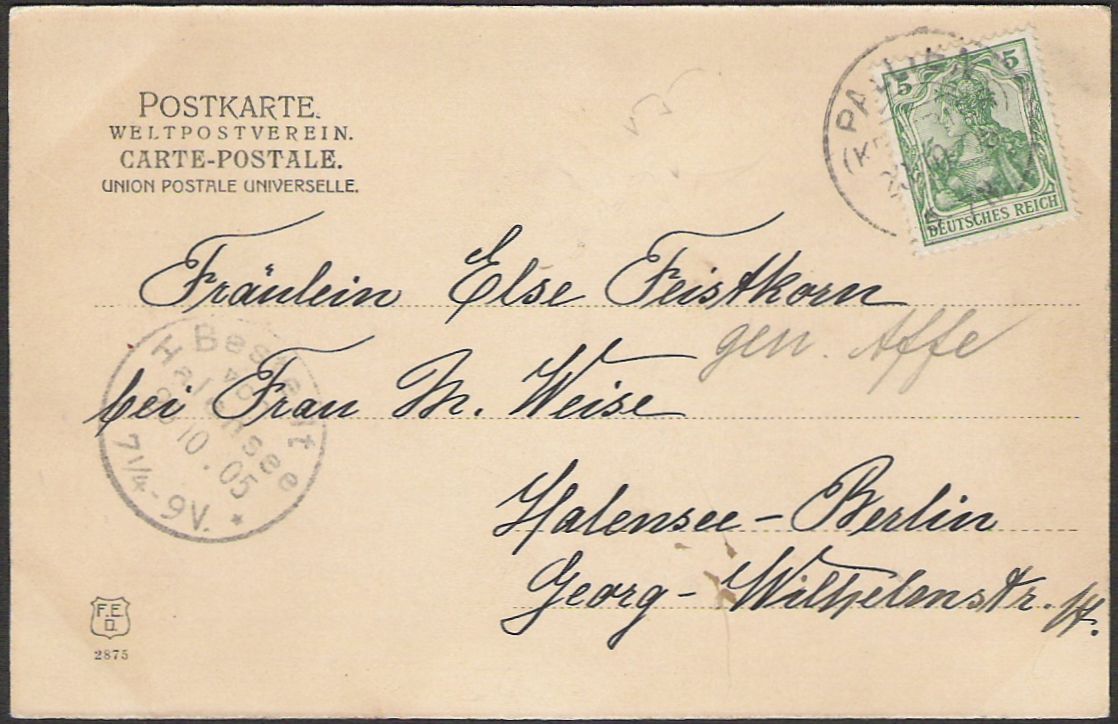 POSTKARTE.
WELTPOSTVEREIN.
CARTE-POSTALE.
UNION POSTALE UNIVERSELLE.
5 5
DEUTSCHES REICH
Fräulein Else Feistkorn
gen. Affe
bei Frau M. Weise
Halensee-Berlin
Georg-Wilhelmstr.
Bestellt
vom
Halensee
10.05
7 1/4-9V.
F.E.
D.
2875